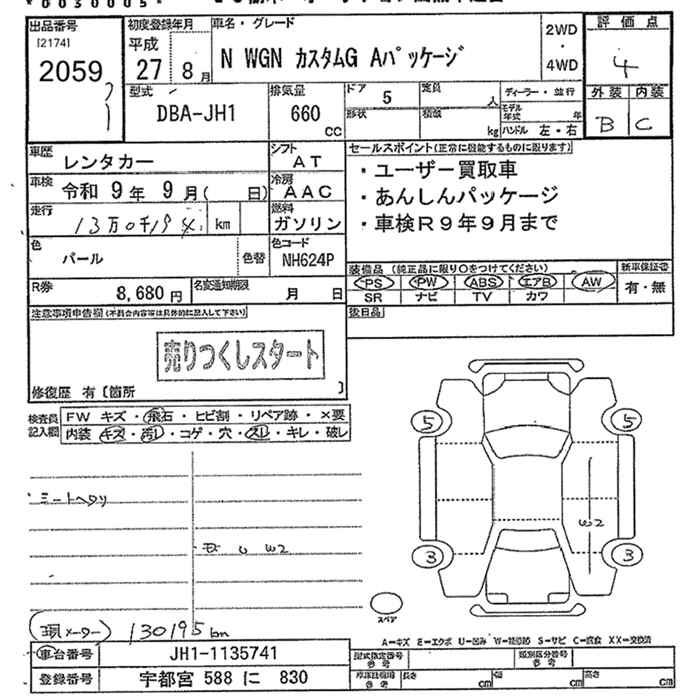 *0030005*
出品番号 初度登録年月 車名・グレード 2WD・4WD 評価点
[2174]
2059
平成27年8月
N WGN カスタムG Aパッケージ
4
型式 DBA-JH1
排気量 660 CC
ドア 5 定員 人
形状 積載 kg
ディーラー・並行
モデル年式 年式
ハンドル 左・右
外装 内装
B C
車歴 レンタカー シフト AT
車検 令和 9年 9月( 日) 冷房 AAC
走行 13万0千194 km 燃料 ガソリン
色 パール 色替 色コード NH624P
R券 8,680円 名変通知期限 月 日
セールスポイント(正常に機能するものに限ります)
・ユーザー買取車
・あんしんパッケージ
・車検R9年9月まで
装備品(純正品に限り○をつけてください) 新車保証書
PS PW ABS エアB AW 有・無
SR ナビ TV カワ
後日品
注意事項申告欄(不具合内容等は具体的に記入して下さい)
売りつくしスタート
修復歴 有〔箇所 〕
検査員記入欄
FW キズ・飛石・ヒビ割・リペア跡・×要
内装 キズ・汚レ・コゲ・穴・スレ・キレ・破レ
シートヘタリ
U W2
5 5
W2
3 3
スペア
現メーター 130195km
A=キズ E=エクボ U=凹み W=補修跡 S=サビ C=腐食 XX=交換済
車台番号 JH1-1135741
型式指定番号 参考 類別区分番号 参考
登録番号 宇都宮 588 に 830
長さ cm 幅 cm 高さ cm